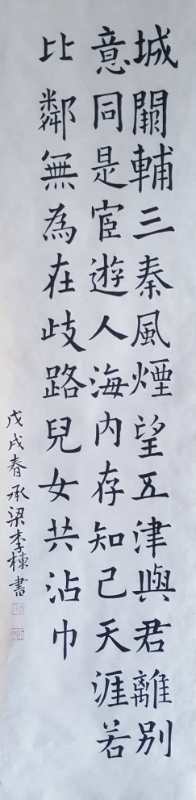 城闕輔三秦風煙望五津與君離別
意同是宦遊人海內存知己天涯若
比鄰無為在歧路兒女共沾巾
戊戌春承梁李棟書